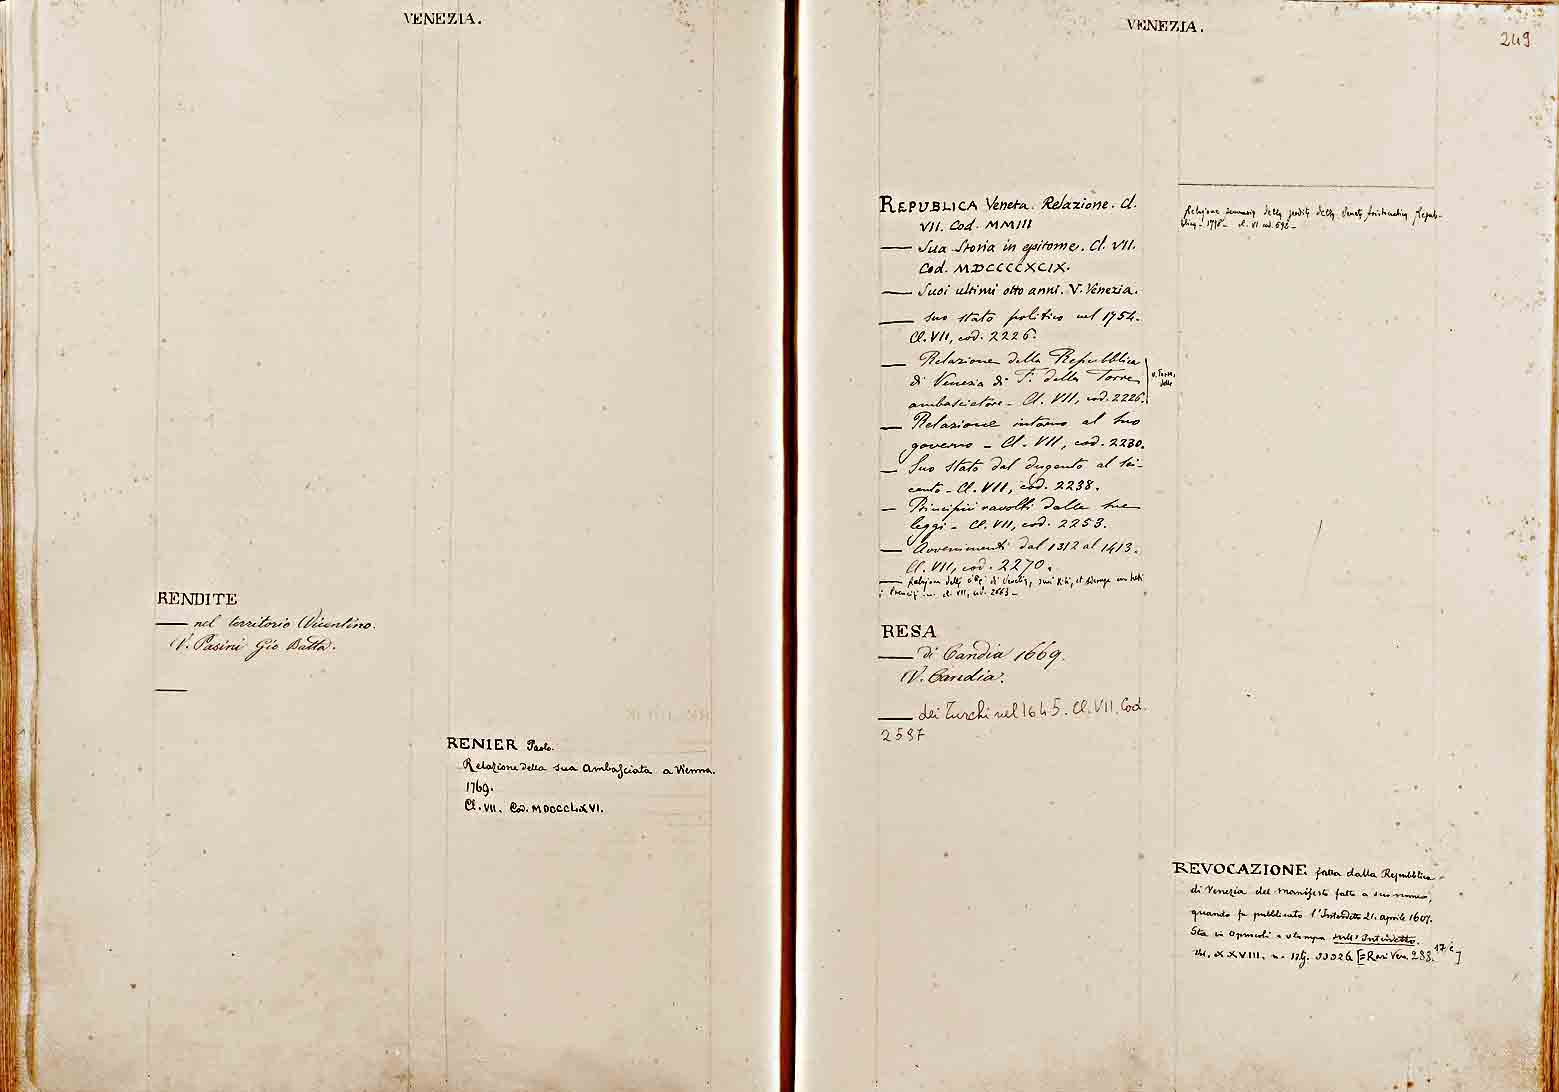 VENEZIA.
RENDITE
— nel territorio Vicentino.
V. Pasini Gio Batta.
—
RENIER Paolo.
Relazione della sua Ambasciata a Vienna.
1769.
Cl. VII. Cod. MDCCCLXVI.
VENEZIA.
249
REPUBLICA Veneta. Relazione. Cl.
VII. Cod. MMIII
— Sua Storia in epitome. Cl. VII.
Cod. MDCCCCXCIX.
— Suoi ultimi otto anni. V. Venezia.
— suo stato politico nel 1754.
Cl. VII, cod. 2226.
— Relazione della Repubblica
di Venezia di F. della Torre
ambasciatore – Cl. VII, cod. 2226.
v. Torre,
della
— Relazione intorno al suo
governo – Cl. VII, cod. 2230.
— Suo stato dal dugento al sei-
cento – Cl. VII, cod. 2238.
— Principii ravolti dalle sue
leggi – Cl. VII, cod. 2253.
— Avvenimenti dal 1312 al 1413.
Cl. VII, cod. 2270.
— Relazione della di Venetia, suoi et
Principi cl. VII, cod. 2663 –
RESA
— di Candia 1669.
V. Candia.
— dei Turchi nel 1645. Cl. VII. Cod.
2587
Relazione della della Veneta Aristocratica Repub-
blica – cl. VI cod. –
REVOCAZIONE fatta dalla Repubblica
di Venezia del manifesto fatto a suo nome,
quando fu pubblicato l'Interdetto 21. aprile 1607.
Sta in Opuscoli a stampa sull'Interdetto.
XXVIII. n. 33326 [= Rari Ven. 283. 17 c]